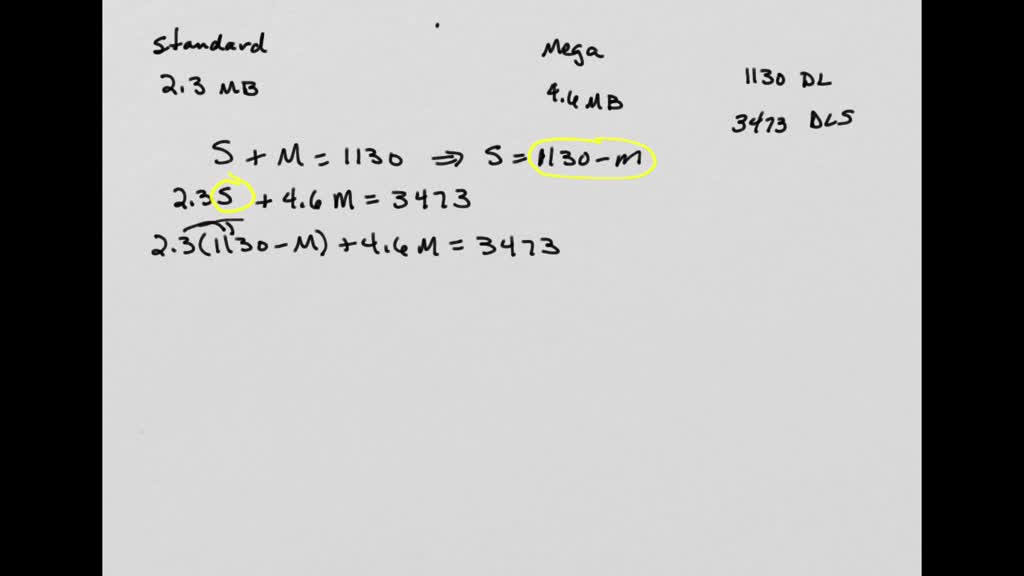 Standard
2.3 MB
Mega
4.6 MB
1130 DL
3473 DLS
S + M = 1130 ⇒ S = 1130 - M
2.3S + 4.6 M = 3473
2.3(1130 - M) + 4.6 M = 3473